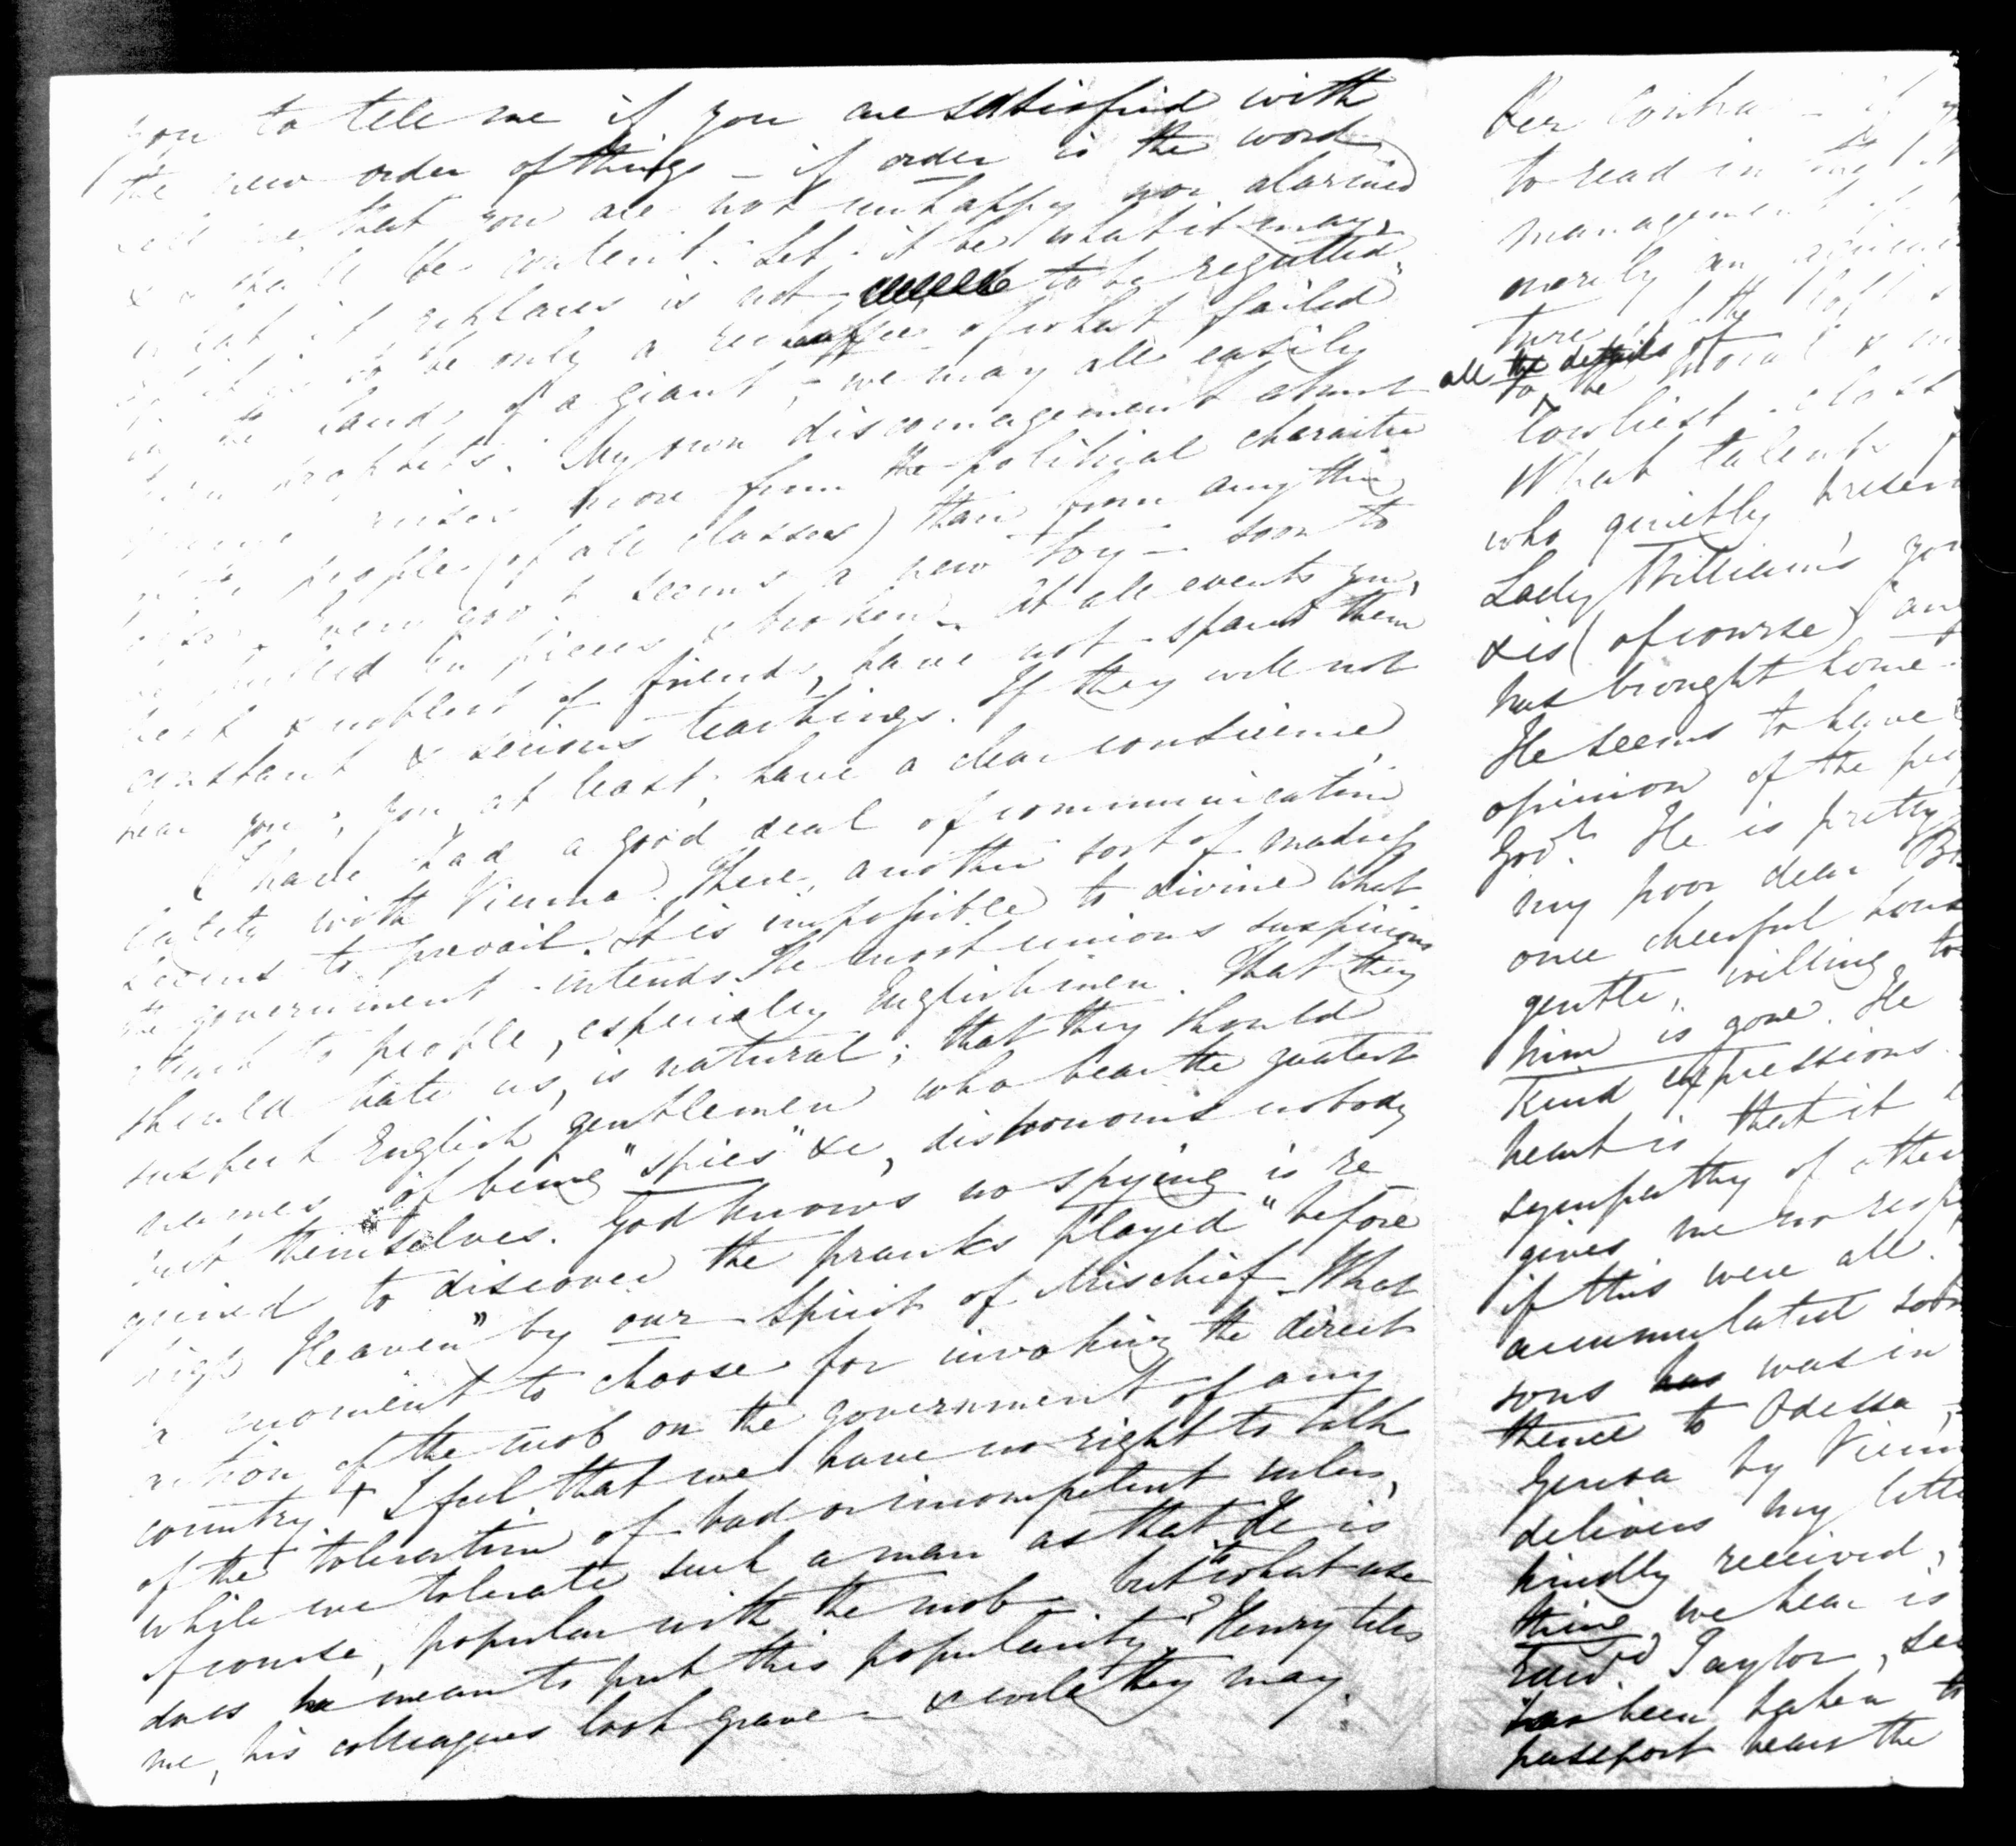 you to tell me if you are satisfied with
the new order of things — if order is the word
tell me that you are not unhappy nor alarmed
& I shall be content. Let it be what it may,
what it replaces is not to be regretted.
to be only a réchauffée of what failed
in the hands of a giant, — we may all easily
turn prophets. My own discouragement about
arises more from the political character
people (of all classes) than from anything
Even gov.t seems a new toy — soon to
be pulled in pieces & broken. At all events you,
best & noblest of friends, have not spared them
constant & serious teachings. If they will not
hear you, you, at least, have a clear conscience.
I have had a good deal of communication
lately with Vienna. There, another sort of madness
seems to prevail. It is impossible to divine what
the government intends. The most curious suspicions
attach to people, especially Englishmen. That they
should hate us, is natural; that they should
suspect English gentlemen who bear the greatest
names of being "spies" &c, dishonours nobody
but themselves. God knows no spying is re-
quired to discover the pranks played "before
high Heaven" by our Spirit of Mischief. What
a moment to choose for invoking the direct
action of the mob on the government of any
country! I feel that we have no right to talk
of the toleration of bad or incompetent rulers,
while we tolerate such a man as that. He is
of course, popular with the mob — but what use
does he mean to put this popularity? Henry tells
me, his colleagues look grave — & well they may.
Per Contra — if
to read in
management
merely an
ture of the
all the details of
to the moral &
lowliest class
What talent
who quietly
Lady William's
& is (of course)
has brought home
He seems to have
opinion of the
Gov.t He is pretty
my poor dear
once cheerful
gentle, willing to
him is gone. He
kind expressions
heart is that it
sympathy of other
gives me no
if this were all.
accumulated
sons has was in
thence to Odessa
Genoa by
delivers my
kindly received,
thing we hear is
Taylor,
has been taken to
passport bears the